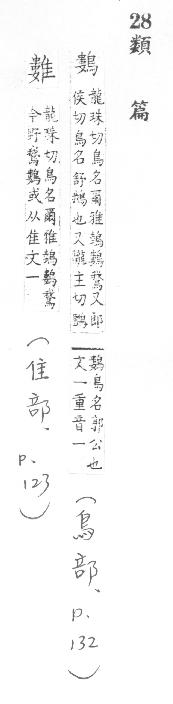 28 類篇
鷜
龍珠切鳥名爾雅鵱鷜鵞又郎
侯切鳥名舒鵝也又隴主切
鷜鳥名郭公也
文一重音一
(鳥部、p.132)
龍珠切鳥名爾雅鵱鷜鵞
今野鵞鷜或从隹文一
(隹部、p.123)